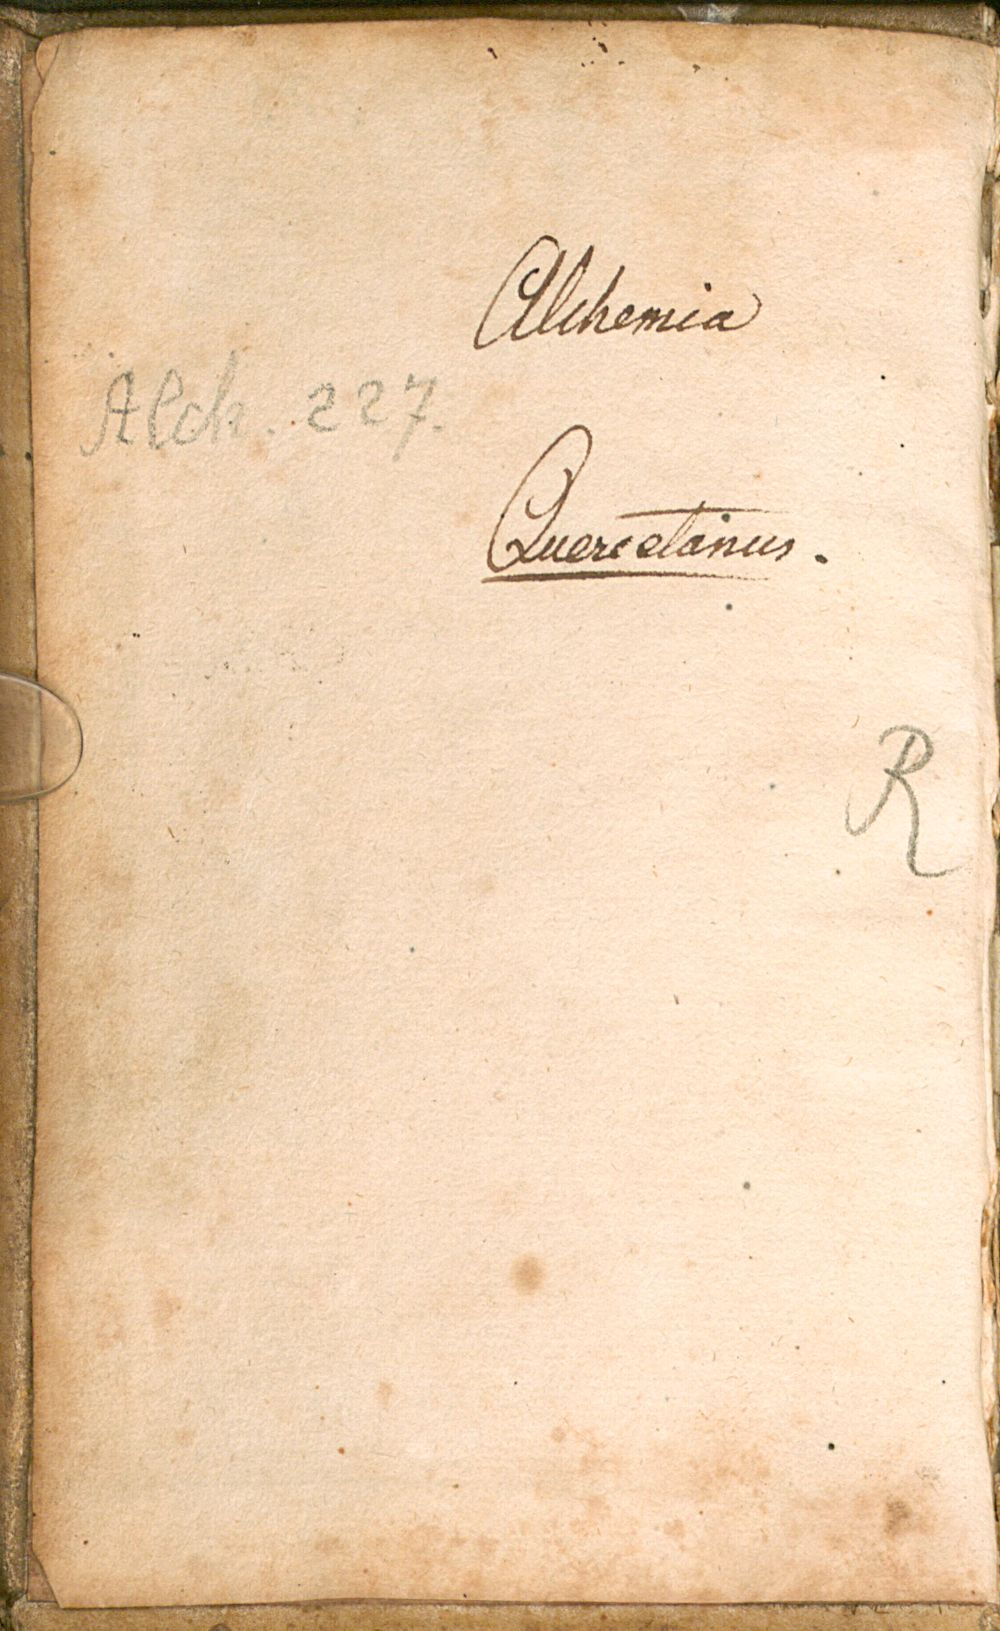 Alchemia
Alch. 227.
Quercetanus.
R